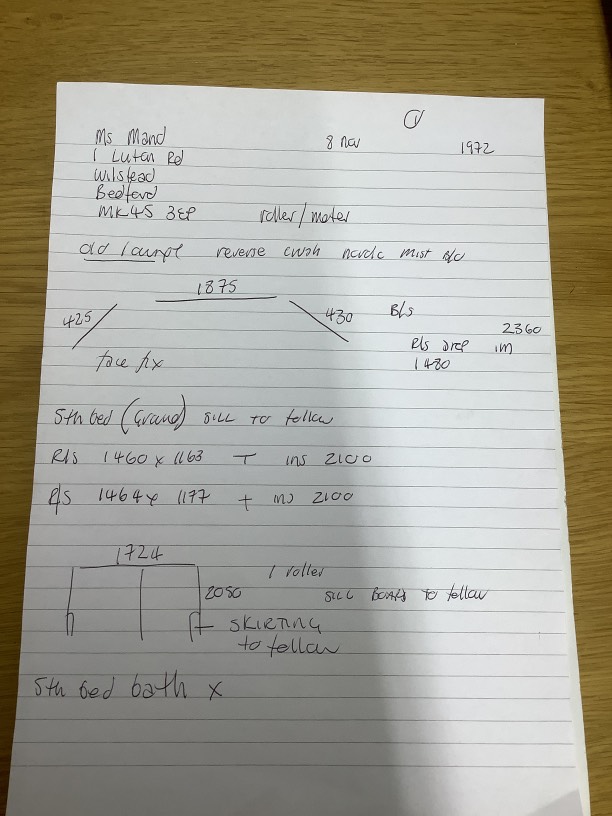 ①
Ms Mand 8 Nov 1972
1 Luton Rd
Wilstead
Bedford
MK45 3EP roller/motor
old lounge reverse cwsh nordic mist
1875
425 430 B/s 2360
R/s drop 1m
face fix 1480
5th bed (Grand) SILL TO follow
R/S 1460 x 1163 T ins 2100
R/S 1464 x 1177 + ins 2100
1724
1 roller
2050 SILL BOARDS TO follow
SKIRTING
to follow
5th bed bath x